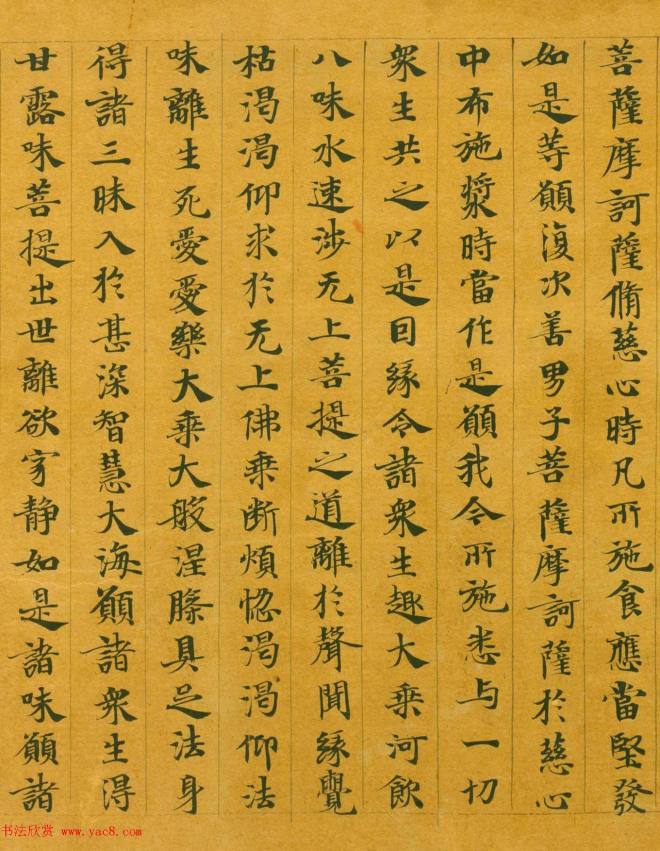 菩薩摩訶薩脩慈心時凡所施食應當堅發
如是等願復次善男子菩薩摩訶薩於慈心
中布施漿時當作是願我今所施悉与一切
衆生共之以是因緣令諸衆生趣大乗河飲
八味水速涉无上菩提之道離於聲聞緣覺
枯渴渴仰求於无上佛乗断煩惚渴渴仰法
味離生死愛愛樂大乗大般涅槃具足法身
得諸三昧入於甚深智慧大海願諸衆生得
甘露味菩提出世離欲寂静如是諸味願諸
书法欣赏 www.yac8.com